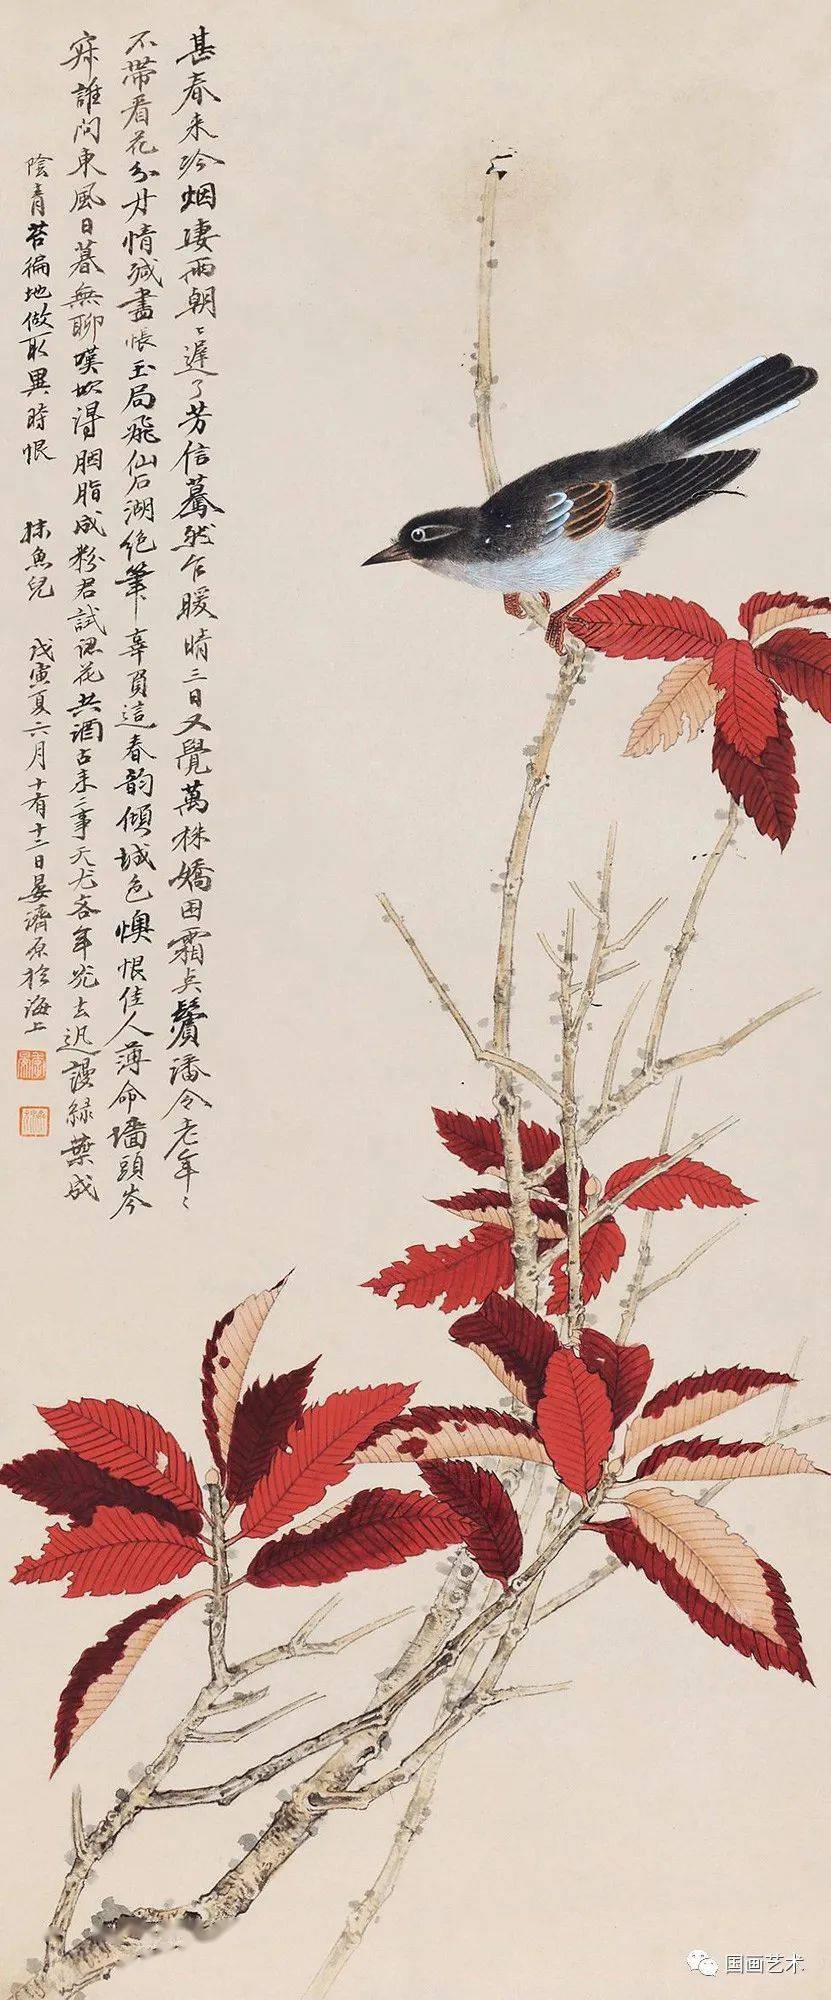 甚春来冷烟凄雨朝〻遲了芳信驀然乍暖晴三日又覺萬株嬌困霜点鬢潘令老年〻
不带看花分才情减盡悵玉局飛仙石湖絶筆辜負這春韵傾城色懊恨佳人薄命墻頭岑
寂誰问東風日暮無聊嘆吹得胭脂成粉君試認花共酒古来二事天尤吝年光去迅謾緑葉成
陰青苔徧地做取異時恨 抹魚兒 戊寅夏六月十有十二日晏濟原於海上
国画艺术